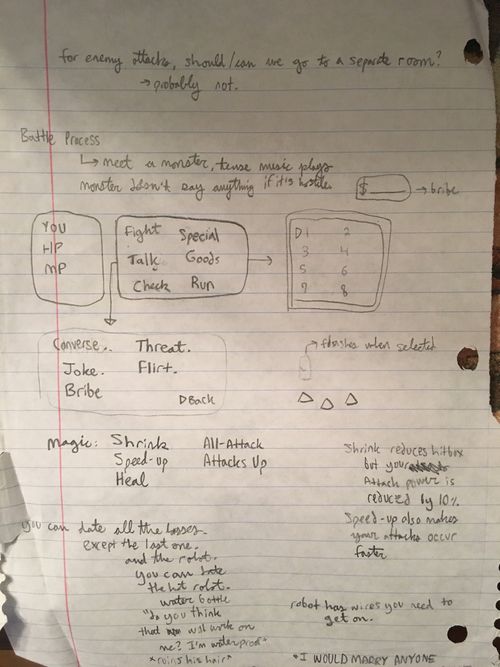 for enemy attacks, should/can we go to a separate room?
→ probably not.
Battle Process
↳ meet a monster, tense music plays
monster doesn't say anything if it's hostile.
$ → bribe
YOU
HP
MP
Fight Special
Talk Goods
Check Run
▷1 2
3 4
5 6
7 8
Converse. Threat.
Joke. Flirt.
Bribe
▷Back
→ flashes when selected
Magic: Shrink All-Attack
Speed-up Attacks Up
Heal
Shrink reduces hitbox
but your
Attack power is
reduced by 10%.
Speed-up also makes
your attacks occur
faster
you can date all the bosses
except the last one.
and the robot.
you can
the hot robot.
water bottle
"do you think
that will work on
me? I'm waterproof"
*ruins his hair*
robot has wires you need to
get on.
"I WOULD MARRY ANYONE